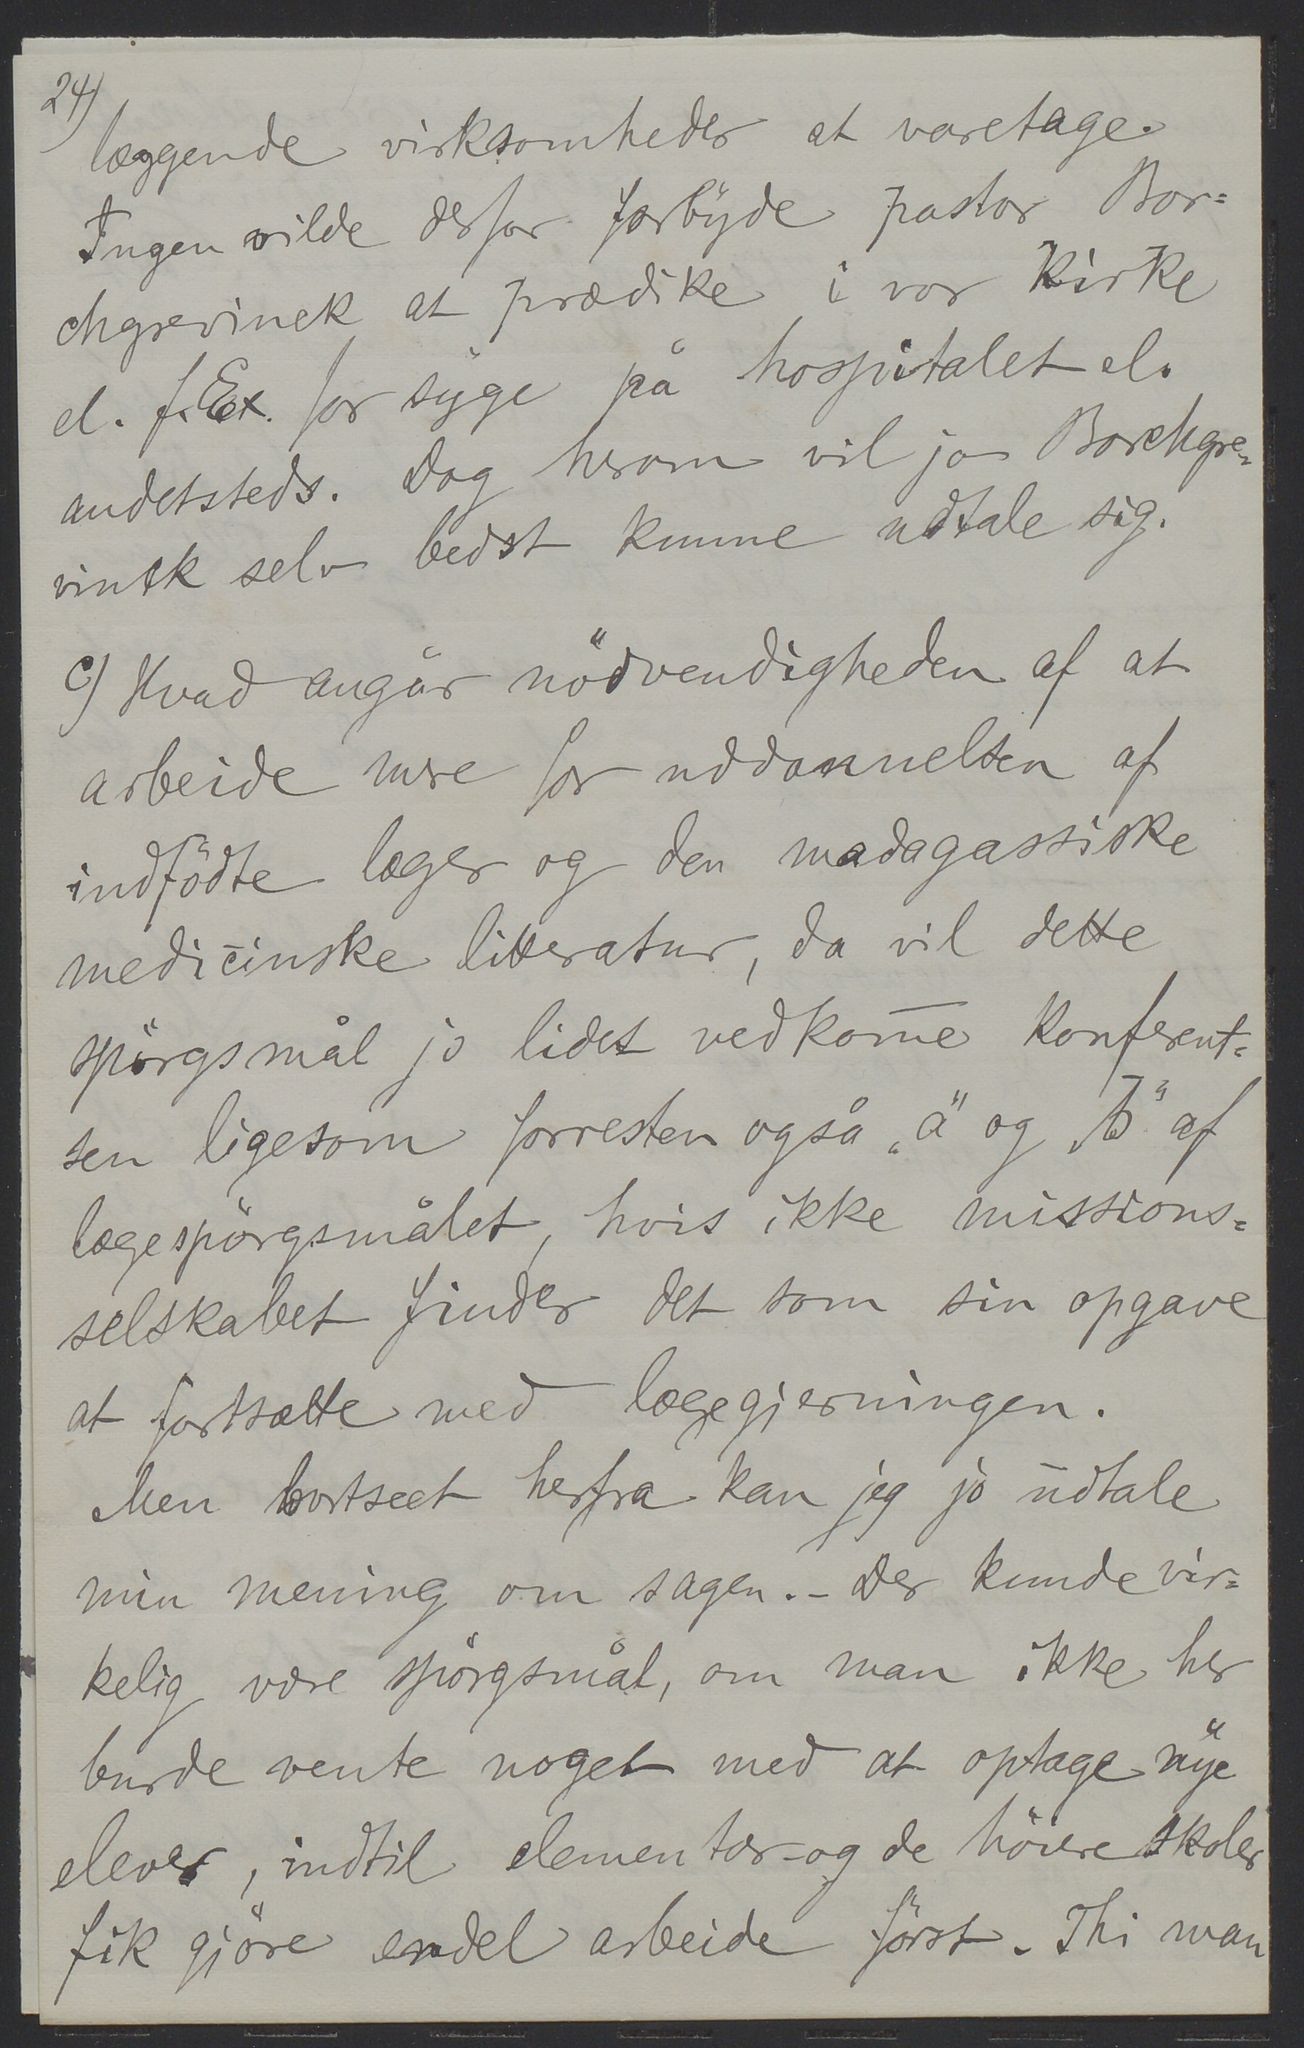 24)
læggende virksomheder at varetage.
Ingen vilde derfor forbyde pastor Bor=
chgrevinck at prædike i vor Kirke
el. f. Ex. for syge på hospitalet el.
andetsteds. Dog herom vil jo Borchgre-
vink selv bedst kunne udtale sig.
c) Hvad angår nödvendigheden af at
arbeide mere for uddannelsen af
indfödte læger og den madagassiske
medicinske litteratur, da vil dette
spörgsmål jo lidet vedkom̄e Konferent=
sen ligesom forresten også „a" og „b" af
lægespörgsmålet, hvis ikke missions=
selskabet finder det som sin opgave
at fortsætte med lægegjerningen.
Men bortseet herfra kan jeg jo udtale
min mening om sagen. - Der kunde vir=
kelig være spörgsmål, om man ikke her
burde vente noget med at optage nye
elever, indtil elementær- og de höiere skoler
fik gjöre endel arbeide först. Thi man